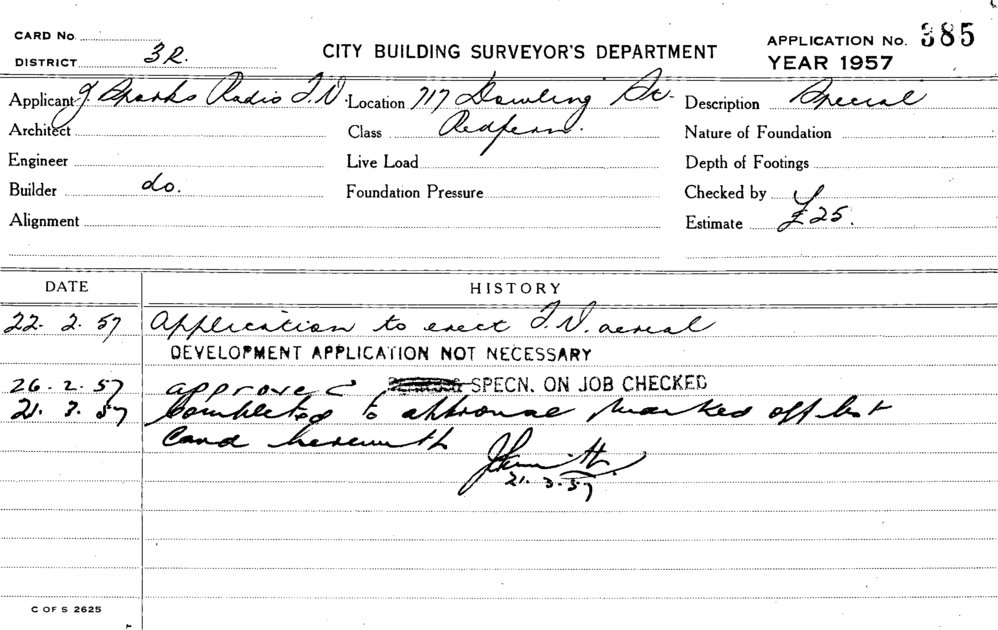 CARD No.
DISTRICT 3R.
CITY BUILDING SURVEYOR'S DEPARTMENT
APPLICATION No. 385
YEAR 1957
Applicant J. Sparks Radio T.V. Location 717 Dowling St. Description Special
Architect Class Redfern. Nature of Foundation
Engineer Live Load Depth of Footings
Builder do. Foundation Pressure Checked by
Alignment Estimate £25.
DATE HISTORY
22. 2. 57 Application to erect T.V. aerial
DEVELOPMENT APPLICATION NOT NECESSARY
26. 2. 57 approved SPECN. ON JOB CHECKED
21. 3. 57 Completed to approval marked off list
Card herewith
21. 3. 57
C OF S 2625